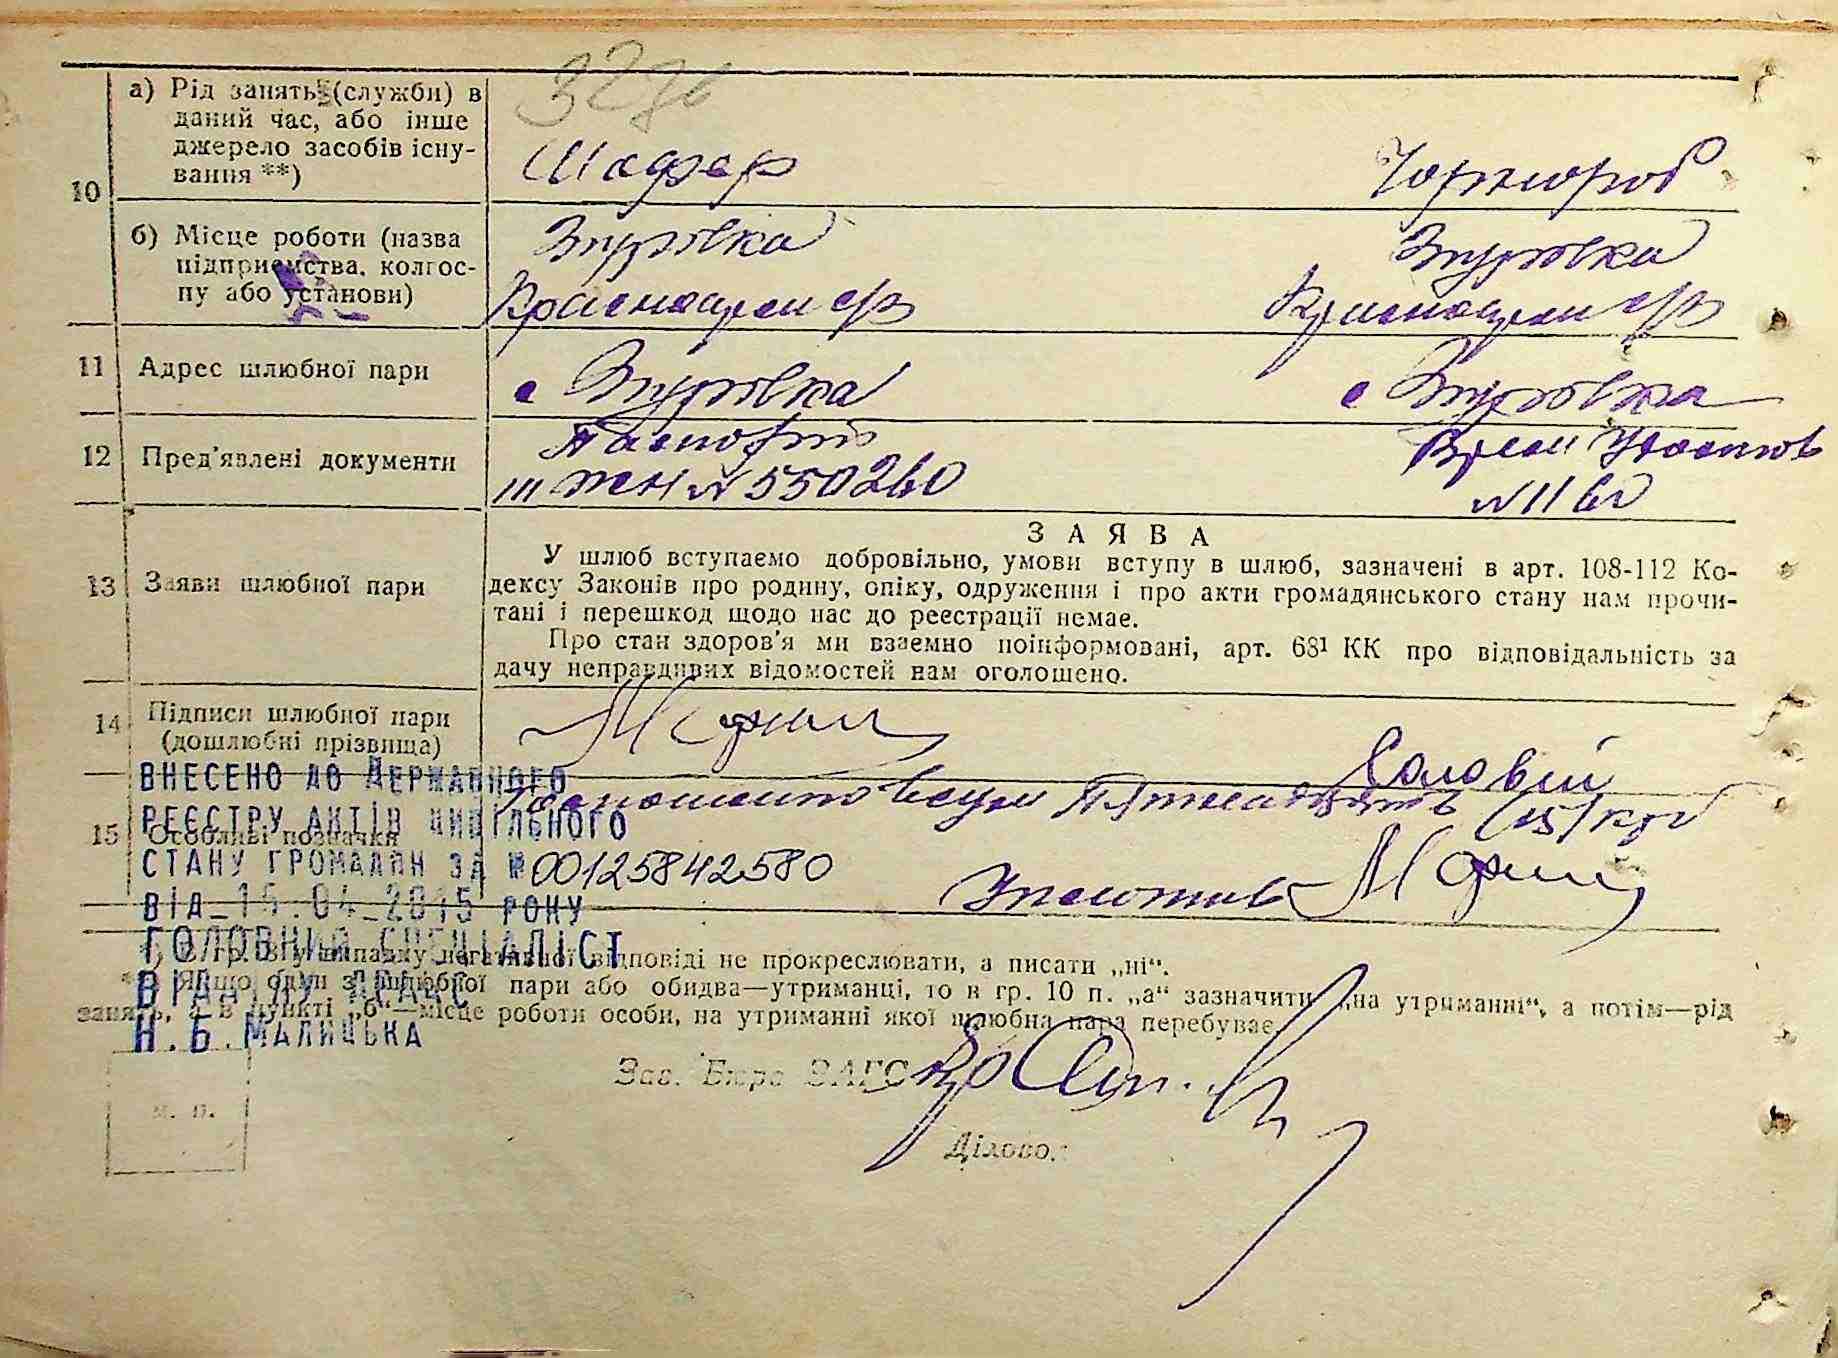 328б
10
а) Рід занять (служби) в
даний час, або інше
джерело засобів існу-
вання **)
Шофер
Чорнороб
б) Місце роботи (назва
підприємства, колгос-
пу або установи)
Згурівка
Згурівка
11
Адрес шлюбної пари
с Згурівка
с Згурівка
12
Пред'явлені документи
Паспорт
III ЖН № 550260
№ 1160
З А Я В А
13
Заяви шлюбної пари
У шлюб вступаємо добровільно, умови вступу в шлюб, зазначені в арт. 108-112 Ко-
дексу Законів про родину, опіку, одруження і про акти громадянського стану нам прочи-
тані і перешкод щодо нас до реєстрації немає.
Про стан здоров'я ми взаємно поінформовані, арт. 68¹ КК про відповідальність за
дачу неправдивих відомостей нам оголошено.
14
Підписи шлюбної пари
(дошлюбні прізвища)
Соловій
15
Особливі позначки
(15) крб
ВНЕСЕНО ДО ДЕРЖАВНОГО
РЕЄСТРУ АКТІВ ЦИВІЛЬНОГО
СТАНУ ГРОМАДЯН ЗА № 00125842580
ВІД 15.04.2015 РОКУ
ГОЛОВНИЙ СПЕЦІАЛІСТ
Н.Б.МАЛИЦЬКА
у випадку негативної відповіді не прокреслювати, а писати „ні“.
Якщо один з шлюбної пари або обидва—утриманці, то в гр. 10 п. „а“ зазначити „на утриманні“, а потім—рід
занять, а в пункті „б“—місце роботи особи, на утриманні якої шлюбна пара перебуває.
Зав. Бюро ЗАГС
Діловод
м. п.